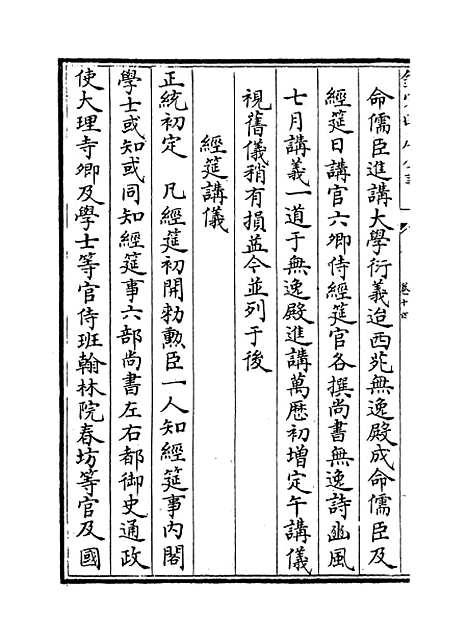 命儒臣進講大學衍義迨西苑無逸殿成命儒臣及
經筵日講官六卿侍經筵官各撰尚書無逸詩豳風
七月講義一道于無逸殿進講萬歷初增定午講儀
視舊儀稍有損益今並列于後
經筵講儀
正統初定 凡經筵初開勅勲臣一人知經筵事内閣
學士或知或同知經筵事六部尚書左右都御史通政
使大理寺卿及學士等官侍班翰林院春坊等官及國
卷十四